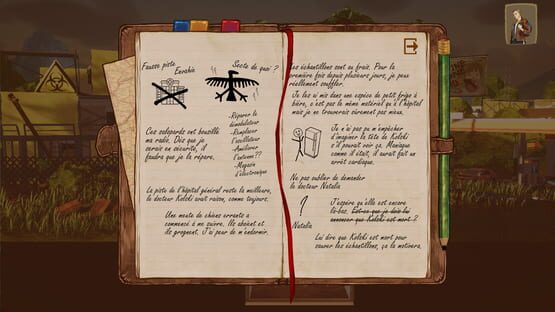 Fausse piste
Envahie
Secte de quoi ?
-Réparer le
démodulateur
-Remplacer
l'oscillateur
-Améliorer
l'antenne??
-Magasin
d'électronique
Ces salopards ont bousillé
ma radio. Dès que je
serais en sécurité, il
faudra que je la répare.
La piste de l'hôpital général reste la meilleure,
le docteur Koloki avait raison, comme toujours.
Une meute de chiens errants a
commencé à me suivre. Ils aboient et
ils grognent. J'ai peur de m'endormir.
Les échantillons sont au frais. Pour la
première fois depuis plusieurs jours, je peux
réellement souffler.
Je les ai mis dans une espèce de petit frigo à
bière, c'est pas le même matériel qu'à l'hôpital
mais je ne trouverais sûrement pas mieux.
Je n'ai pas pu m'empêcher
d'imaginer la tête de Koloki
s'il pouvait voir ça. Maniaque
comme il était, il aurait fait un
arrêt cardiaque.
Ne pas oublier de demander
le docteur Natalia
?
Natalia
J'espère qu'elle est encore
là-bas. Est-ce que je dois lui
annoncer que Koloki est mort ?
Lui dire que Koloki est mort pour
sauver les échantillons, ça la motivera.